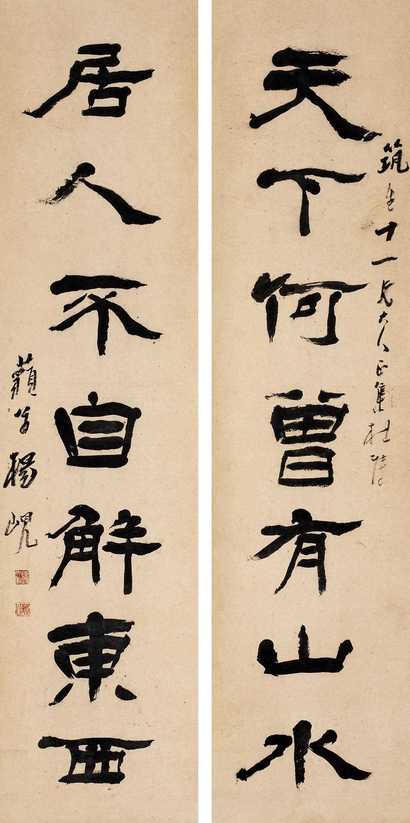 天下何曾有山水
筑 十一兄大人正集杜陵
居人不自解東西
藾 楊峴